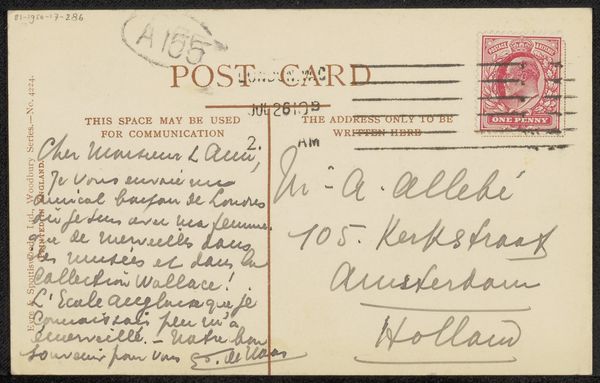 21-1950-17-286
A 155
POST CARD
LONDON. W.C
JUL 26 10
2.
AM
THIS SPACE MAY BE USED
FOR COMMUNICATION
THE ADDRESS ONLY TO BE
WRITTEN HERE
ONE PENNY
Eyre & Spottiswoode, Ltd., Woodbury Series.—No. 4224.
PRINTED IN ENGLAND.
Cher Monsieur l'Ami,
Je vous envoie un
amical bonjour de Londres
où je suis avec ma femme.
que de merveilles dans
les musées et dans la
Collection Wallace!
L'Ecole Anglaise que je
connaissais peu m'a
émerveillé. — Notre bon
souvenir pour vous
Mr A. Allebé
105. Kerkstraat
Amsterdam
Holland